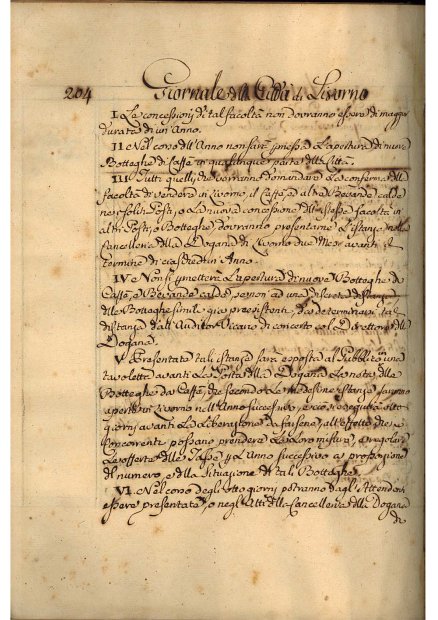 204 Giornale della Città di Livorno
I. Le concessioni di tal facoltà non dovranno essere di maggior
durata di un'Anno.
II. Nel corso dell'Anno non sarà permessa l'apertura di nuove
Botteghe di Caffè in qualunque parte della Città.
III. Tutti quelli, che vorranno domandare la conferma della
facoltà di vendere in Livorno il Caffè, ed altre Bevande calde
nei soliti Posti, o la nuova concessione della stessa facoltà in
altri Posti, o Botteghe, dovranno presentarne l'istanza nella
Cancelleria della Dogana di Livorno due Mesi avanti il
termine di ciaschedun Anno.
IV. Non si permetterà l'apertura di nuove Botteghe da
Caffè, e Bevande calde, se non ad una discreta distanza
dalle Botteghe simili già preesistenti, da determinarsi tal
distanza dall'Auditor Vicario di concerto col Direttore della
Dogana.
V. Presentate tali istanze sarà esposta al Pubblico in una
tavoletta avanti la Porta della Dogana la nota delle
Botteghe da Caffè, che secondo le medesime istanze saranno
aperte in Livorno nell'Anno successivo, e ciò seguirà otto
giorni avanti la liberazione da farsene, all'effetto che i
Concorrenti possano prendere le loro misure, e regolare
le offerte delle Tasse per l'Anno successivo a proporzione
del numero, e della situazione di tali Botteghe.
VI. Nel corso degli otto giorni potranno dagli Attendenti
essere presentate, o negli Atti della Cancelleria della Dogana
di